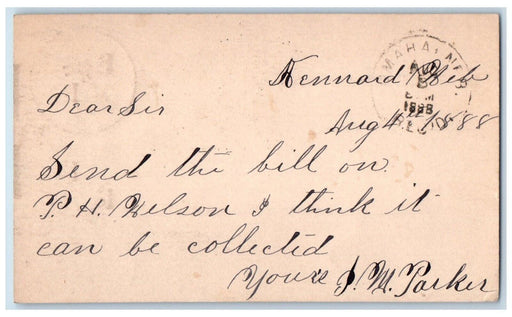 Kennard Neb
Dear Sir
Aug 4th 1888
Send the bill on
P. H. Nelson I think it
can be collected
Yours J. M. Parker
OMAHA, NEB.
AUG
5
M
1888
REC'D.